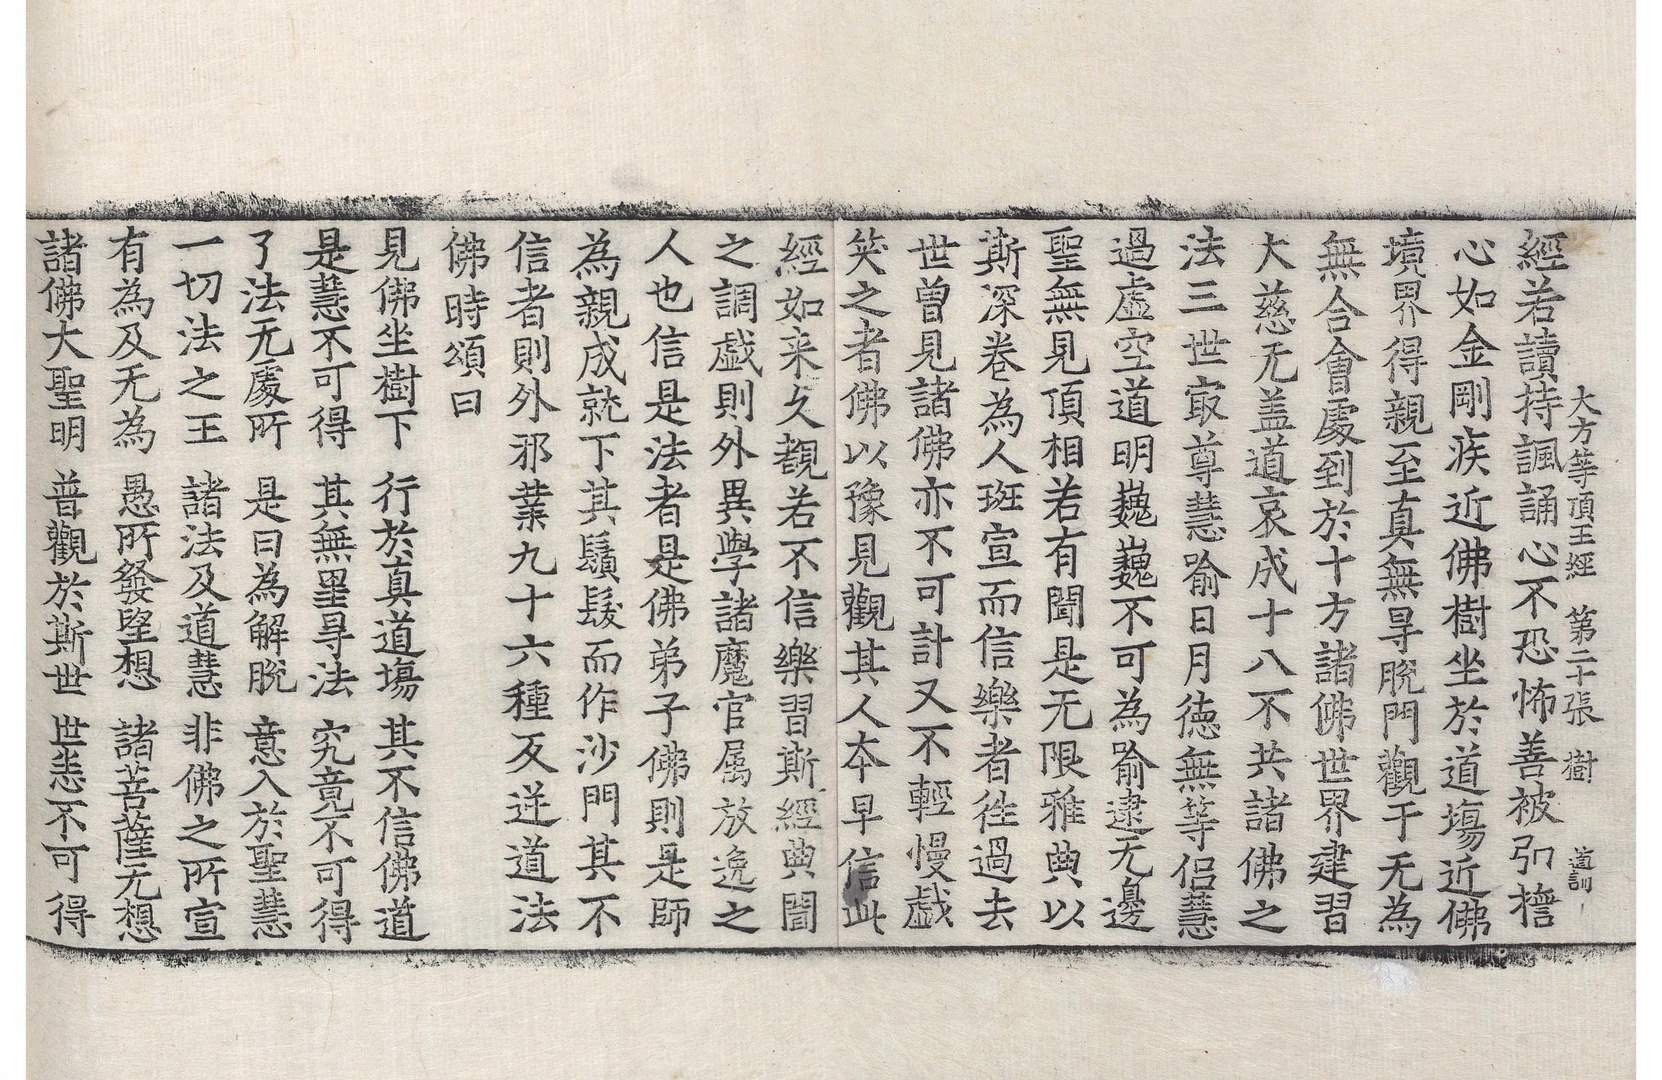 大方等頂王經　第二十張　樹　道訓
經若讀持諷誦心不恐怖善被弘擔
心如金剛疾近佛樹坐於道塲近佛
境界得親至真無㝵脫門觀于无為
無合會處到於十方諸佛世界建習
大慈无盖道哀成十八不共諸佛之
法三世㝡尊慧喻日月德無等侣慧
過虛空道明巍巍不可為喻逮无邊
聖無見頂相若有聞是无限雅典以
斯深卷為人班宣而信樂者徃過去
世曾見諸佛亦不可計又不輕慢戲
笑之者佛以豫見觀其人本早信此
經如来久覩若不信樂習斯經典誾
之調戲則外異學諸魔官属放逸之
人也信是法者是佛弟子佛則是師
為親成就下其鬚髮而作沙門其不
信者則外邪業九十六種反逆道法
佛時頌曰
見佛坐樹下　行於真道塲　其不信佛道
是慧不可得　其無罣㝵法　究竟不可得
了法无處所　是曰為解脫　意入於聖慧
一切法之王　諸法及道慧　非佛之所宣
有為及无為　愚所發望想　諸菩薩无想
諸佛大聖明　普觀於斯世　世恚不可得